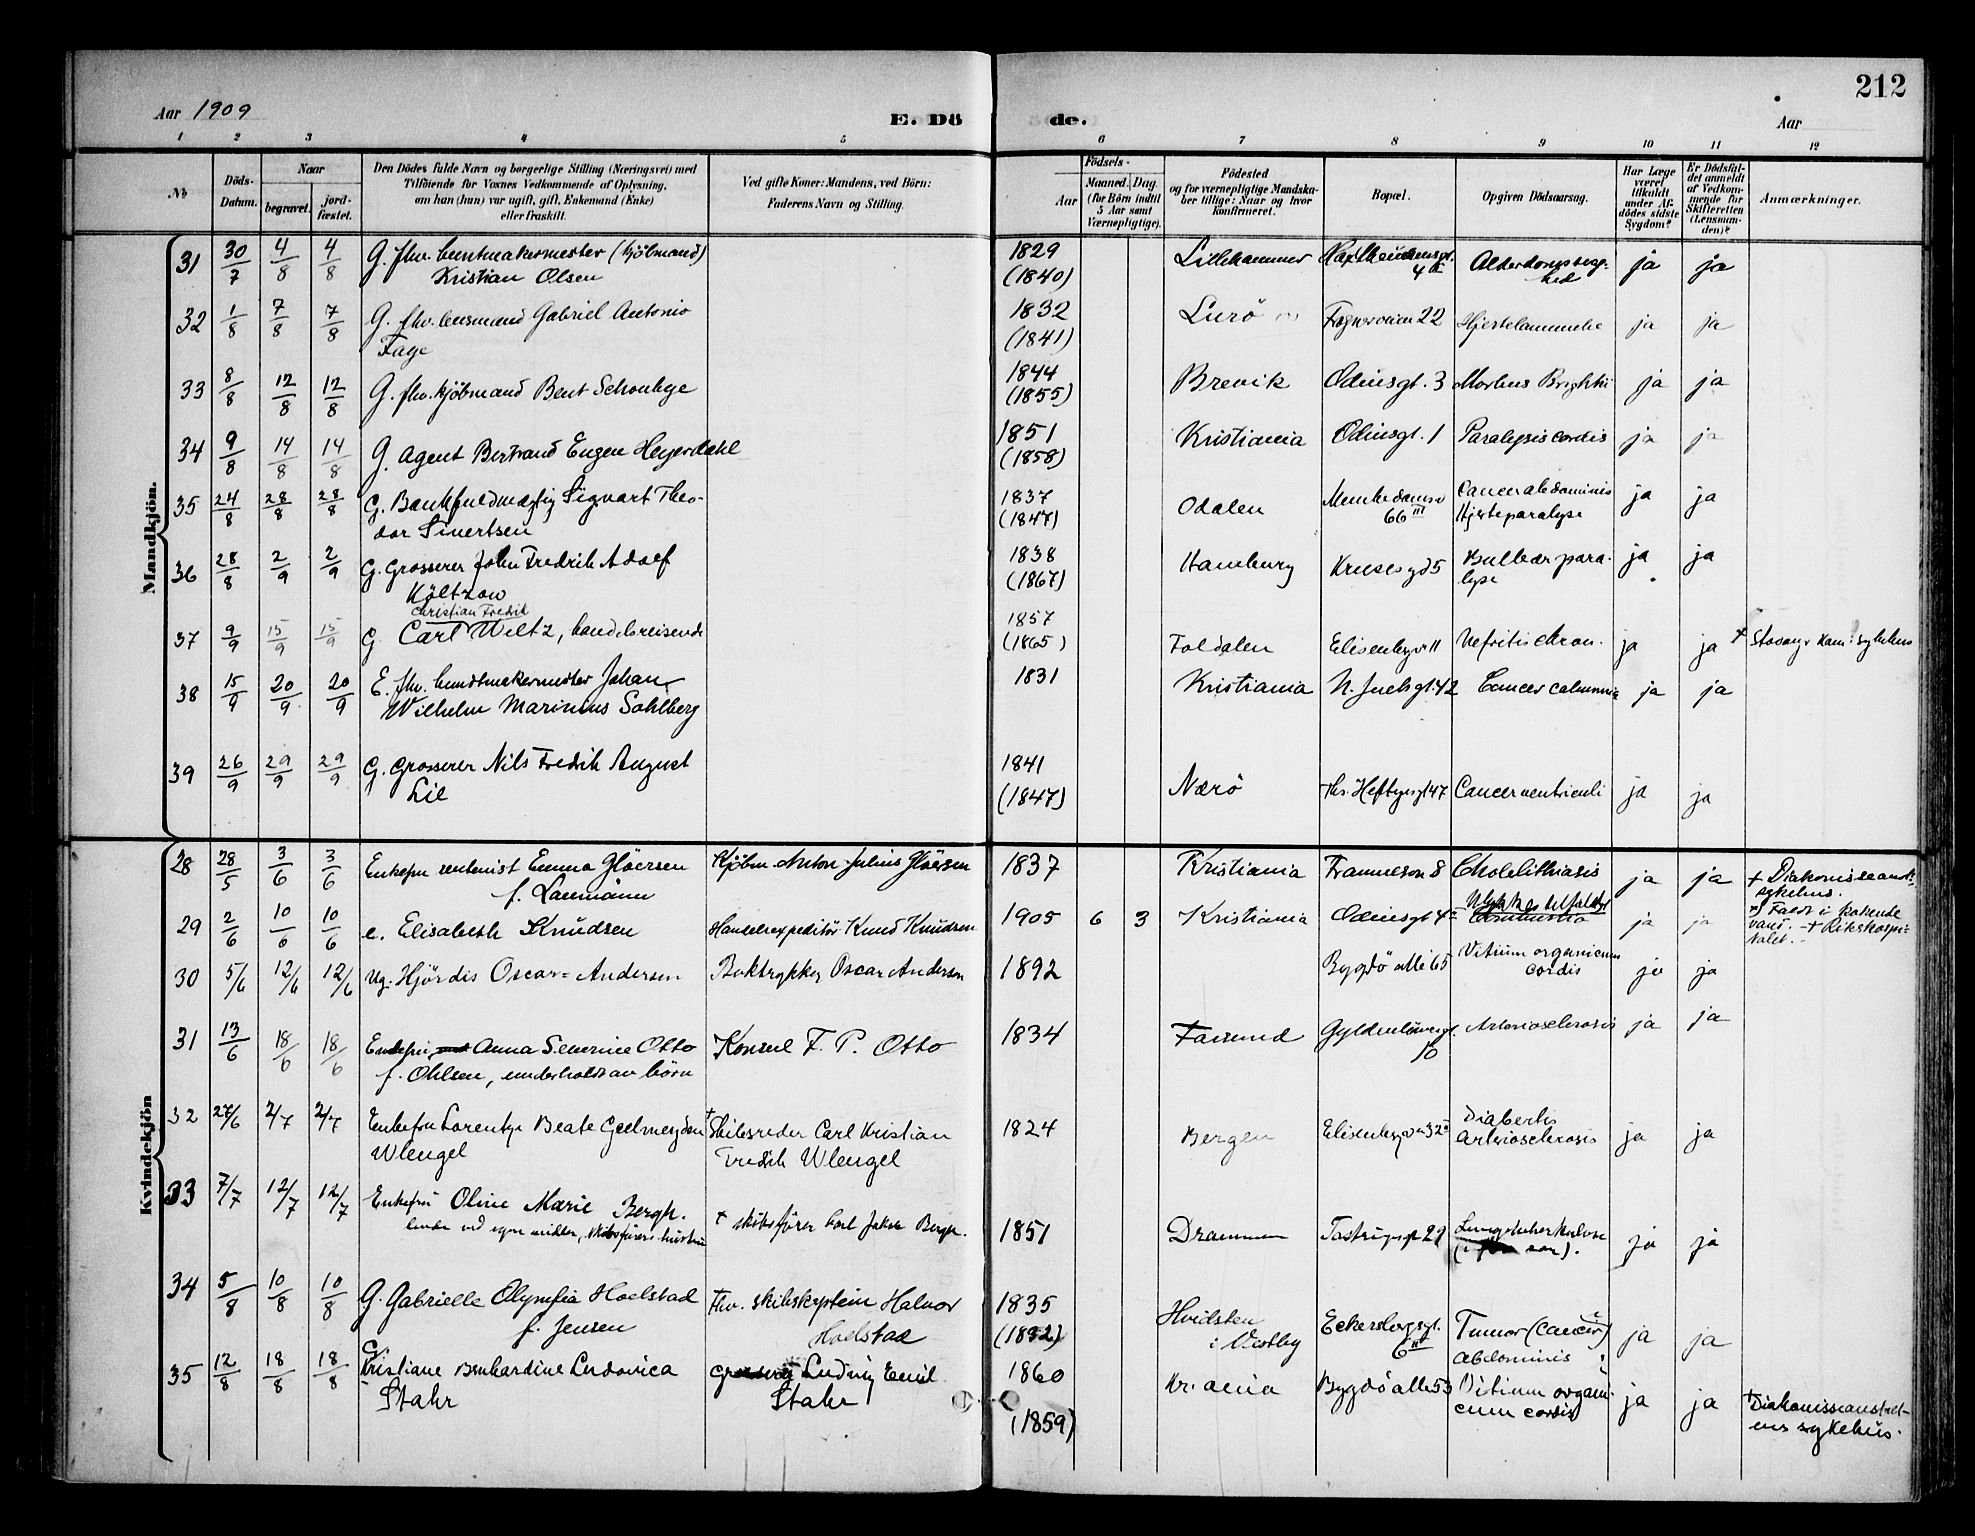 212
Aar 1909
E. Dö de.
Aar
1 2 3 4 5 6 7 8 9 10 11 12
No
Döds-Datum.
Naar
begravet.
jord-fæstet.
Den Dödes fulde Navn og borgerlige Stilling (Næringsvei) med
Tilföiende for Voxnes Vedkommende af Oplysning,
om han (hun) var ugift, gift, Enkemand (Enke)
eller fraskilt.
Ved gifte Koner: Mandens, ved Börn:
Faderens Navn og Stilling.
Födsels-
Aar
Maaned. Dag.
(for Börn indtil
5 Aar samt
Værnepligtige).
Födested
og for værnepligtige Mandska-
ber tillige: Naar og hvor
konfirmeret.
Bopæl.
Opgiven Dödsaarsag.
Har Læge
været
tilkaldt
under Af-
dödes sidste
Sygdom?
Er Dödsfal-
det anmeldt
af Vedkom-
mende for
Skifteretten
(Lensman-
den)?
Anmærkninger.
Mandkjön.
31 30/7 4/8 4/8 G. fhv. buntmakermester (kjöbmand) 1829 Lillehammer ja ja
Kristian Olsen (1840)
32 1/8 7/8 7/8 G. fhv. lensmand Gabriel Antonio 1832 Lurö 22 Hjertelammelse ja ja
Fage (1841)
33 8/8 12/8 12/8 G. fhv. kjöbmand Bent 1844 Brevik Odinsgt. 3 Morbus Brightii ja ja
(1855)
34 9/8 14/8 14/8 G. Agent Bertrand Eugen Heyerdahl 1851 Kristiania Odinsgt. 1 Paralysis cordis ja ja
(1858)
35 24/8 28/8 28/8 G. Bankfuldmægtig Sigvart Theo- 1837 Odalen Munkedamsv Cancer abdominis ja ja
dor Sivertsen (1847) 66 III Hjerteparalyse
36 28/8 2/9 2/9 G. Grosserer John Fredrik Adolf 1838 Hamburg Krusesgd 5 Bulbær para- ja ja
Költzow (1867) lyse
Christian Fredrik
37 9/9 15/9 15/9 G Carl Weltz, handelsreisende 1857 Foldalen Elisenbergv 11 Nefritis chron. ja ja + Stavang. kom: sykehus
(1865)
38 15/9 20/9 20/9 E. fhv. buntmakermester Johan 1831 Kristiania N. Juelsgt. 42 Cancer ja ja
Wilhelm Marinius Sahlberg
39 26/9 29/9 29/9 G. Grosserer Nils Fredrik August 1841 Nærö Ths. Heftyesgt 47 Cancer ventriculi ja ja
Lie (1847)
Kvindekjön
28 28/5 3/6 3/6 Enkefru rentenist Emma Gløersen Kjöbm. Anton Julius Gløersen 1837 Kristiania 8 Cholelithiasis ja ja + Diakonisseanst.
f. Laumann sykehus.
29 2/6 10/6 10/6 e. Elisabeth Knudsen Handelsexpeditör Knud Knudsen 1905 6 3 Kristiania Odinsgt 4 Ulykkestilfælde ja ja *) Faldt i kokende
vand. + Rikshospi-
talet.
30 5/6 12/6 12/6 ug. Hjördis Oscar= Andersen Boktrykker Oscar Andersen 1892 Bygdö allé 65 Vitium organicum ja ja
cordis
31 13/6 18/6 18/6 Enkefru Anna Severine Otto Konsul F. P. Otto 1834 Farsund Gyldenlövesgt. Arteriosclerosis ja ja
f. Ohlsen, underholdt av börn 10
32 27/6 2/7 2/7 Enkefru Lorentze Beate Geelmuyden + Skibsreder Carl Kristian 1824 Bergen Elisenbergvn 32 Diabetes ja ja
Wlengel Fredrik Wlengel Arteriosclerosis
33 7/7 12/7 12/7 Enkefru Oline Marie Bergh. + skibsförer Carl Jakob Bergh. 1851 Drammen 29 Lungetuberkulose ja ja
lever ved egne midler, skibsförers hustru
34 5/8 10/8 10/8 G. Gabrielle Olympia Hoelstad Fhv. skibskaptein Halvor 1835 Hvidsten Eckersbergsgt. Tumor (cancer) ja ja
f. Jensen Hoelstad (1832) i Vestby 6 II abdominis
35 12/8 18/8 18/8 G. Kristiane Bernhardine Ludovica Grosserer Ludvig Emil 1860 Kr.ania Bygdö allé 53 Vitium organi- ja ja + Diakonisseanstalt-
Stahr Stahr (1859) cum cordis ens sykehus.